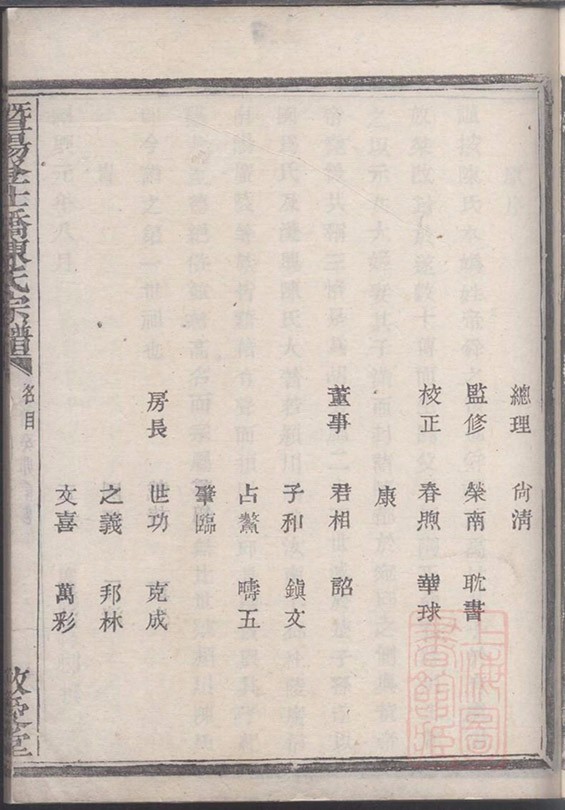 總理 尙清
監修 榮南 耽書
校正 春煦 華球
康
董事 君相 韶
子和 鎮文
占鰲 疇五
肇臨
房長 世功 克成
之義 邦林
文喜 萬彩
暨陽 橋陳氏宗譜 名目 敬愛堂
上海圖書館藏